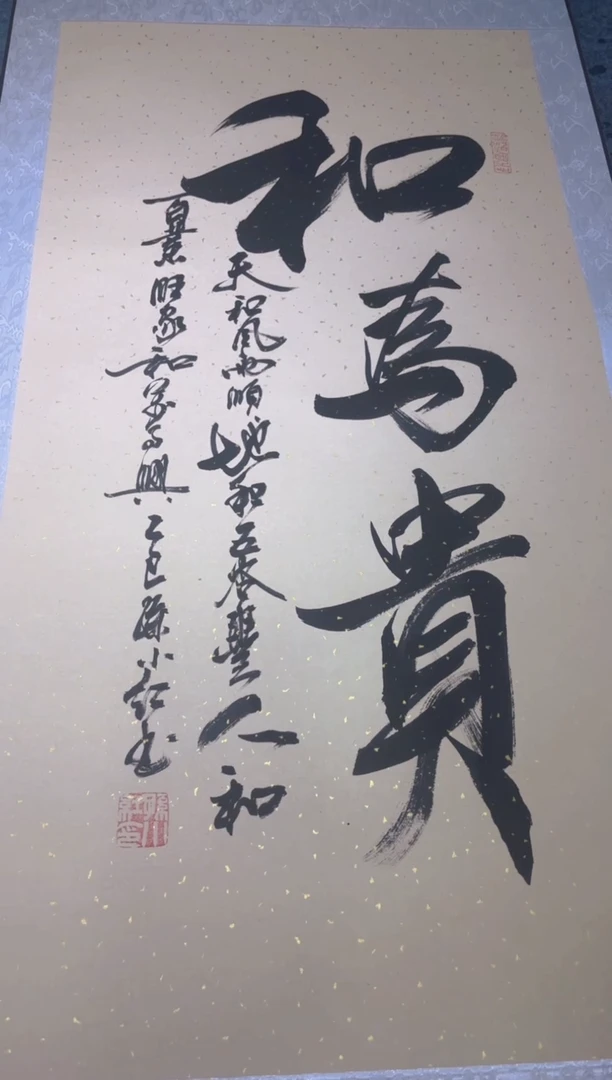 和為貴
天和風雨順地和五谷豐人和
百業旺家和萬事興乙巳孫小紅書